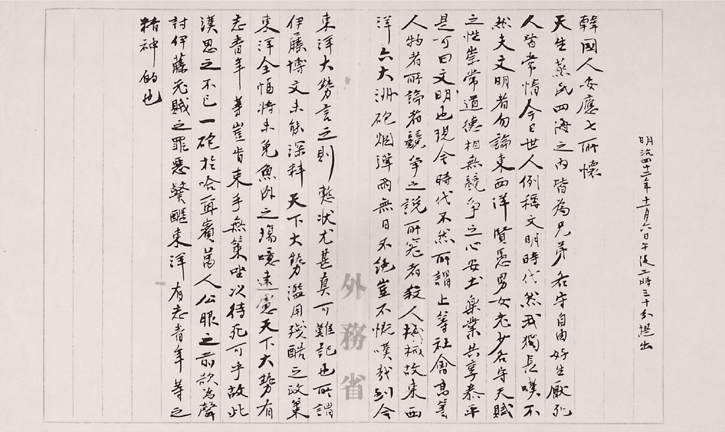 明治四十二年十一月六日午後二時三十分提出
韓國人安應七所懷
天生蒸民四海之內皆為兄弟各守自由好生厭死
人皆常情今日世人例稱文明時代然我獨長嘆不
然夫文明者勿論東西洋賢愚男女老少各守天賦
之性崇常道德相無競爭之心安土樂業共享泰平
是可曰文明也現今時代不然所謂上等社會高等
人物者所論者競爭之說所究者殺人機械故東西
洋六大洲砲烟彈雨無日不絕豈不慨嘆哉到今
東洋大勢言之則慙狀尤甚真可難記也所謂
伊藤博文未能深料天下大勢濫用殘酷之政策
東洋全幅將未免魚肉之場噫遠慮天下大勢有
志青年等豈肯束手無策坐以待死可乎故此
漢思之不已一砲於哈爾賓萬人公眼之前欲為聲
討伊藤老賊之罪惡警醒東洋有志青年等之
精神的也
外務省